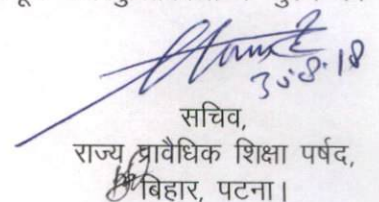 30.8.18
सचिव,
राज्य प्रावैधिक शिक्षा पर्षद,
बिहार, पटना।